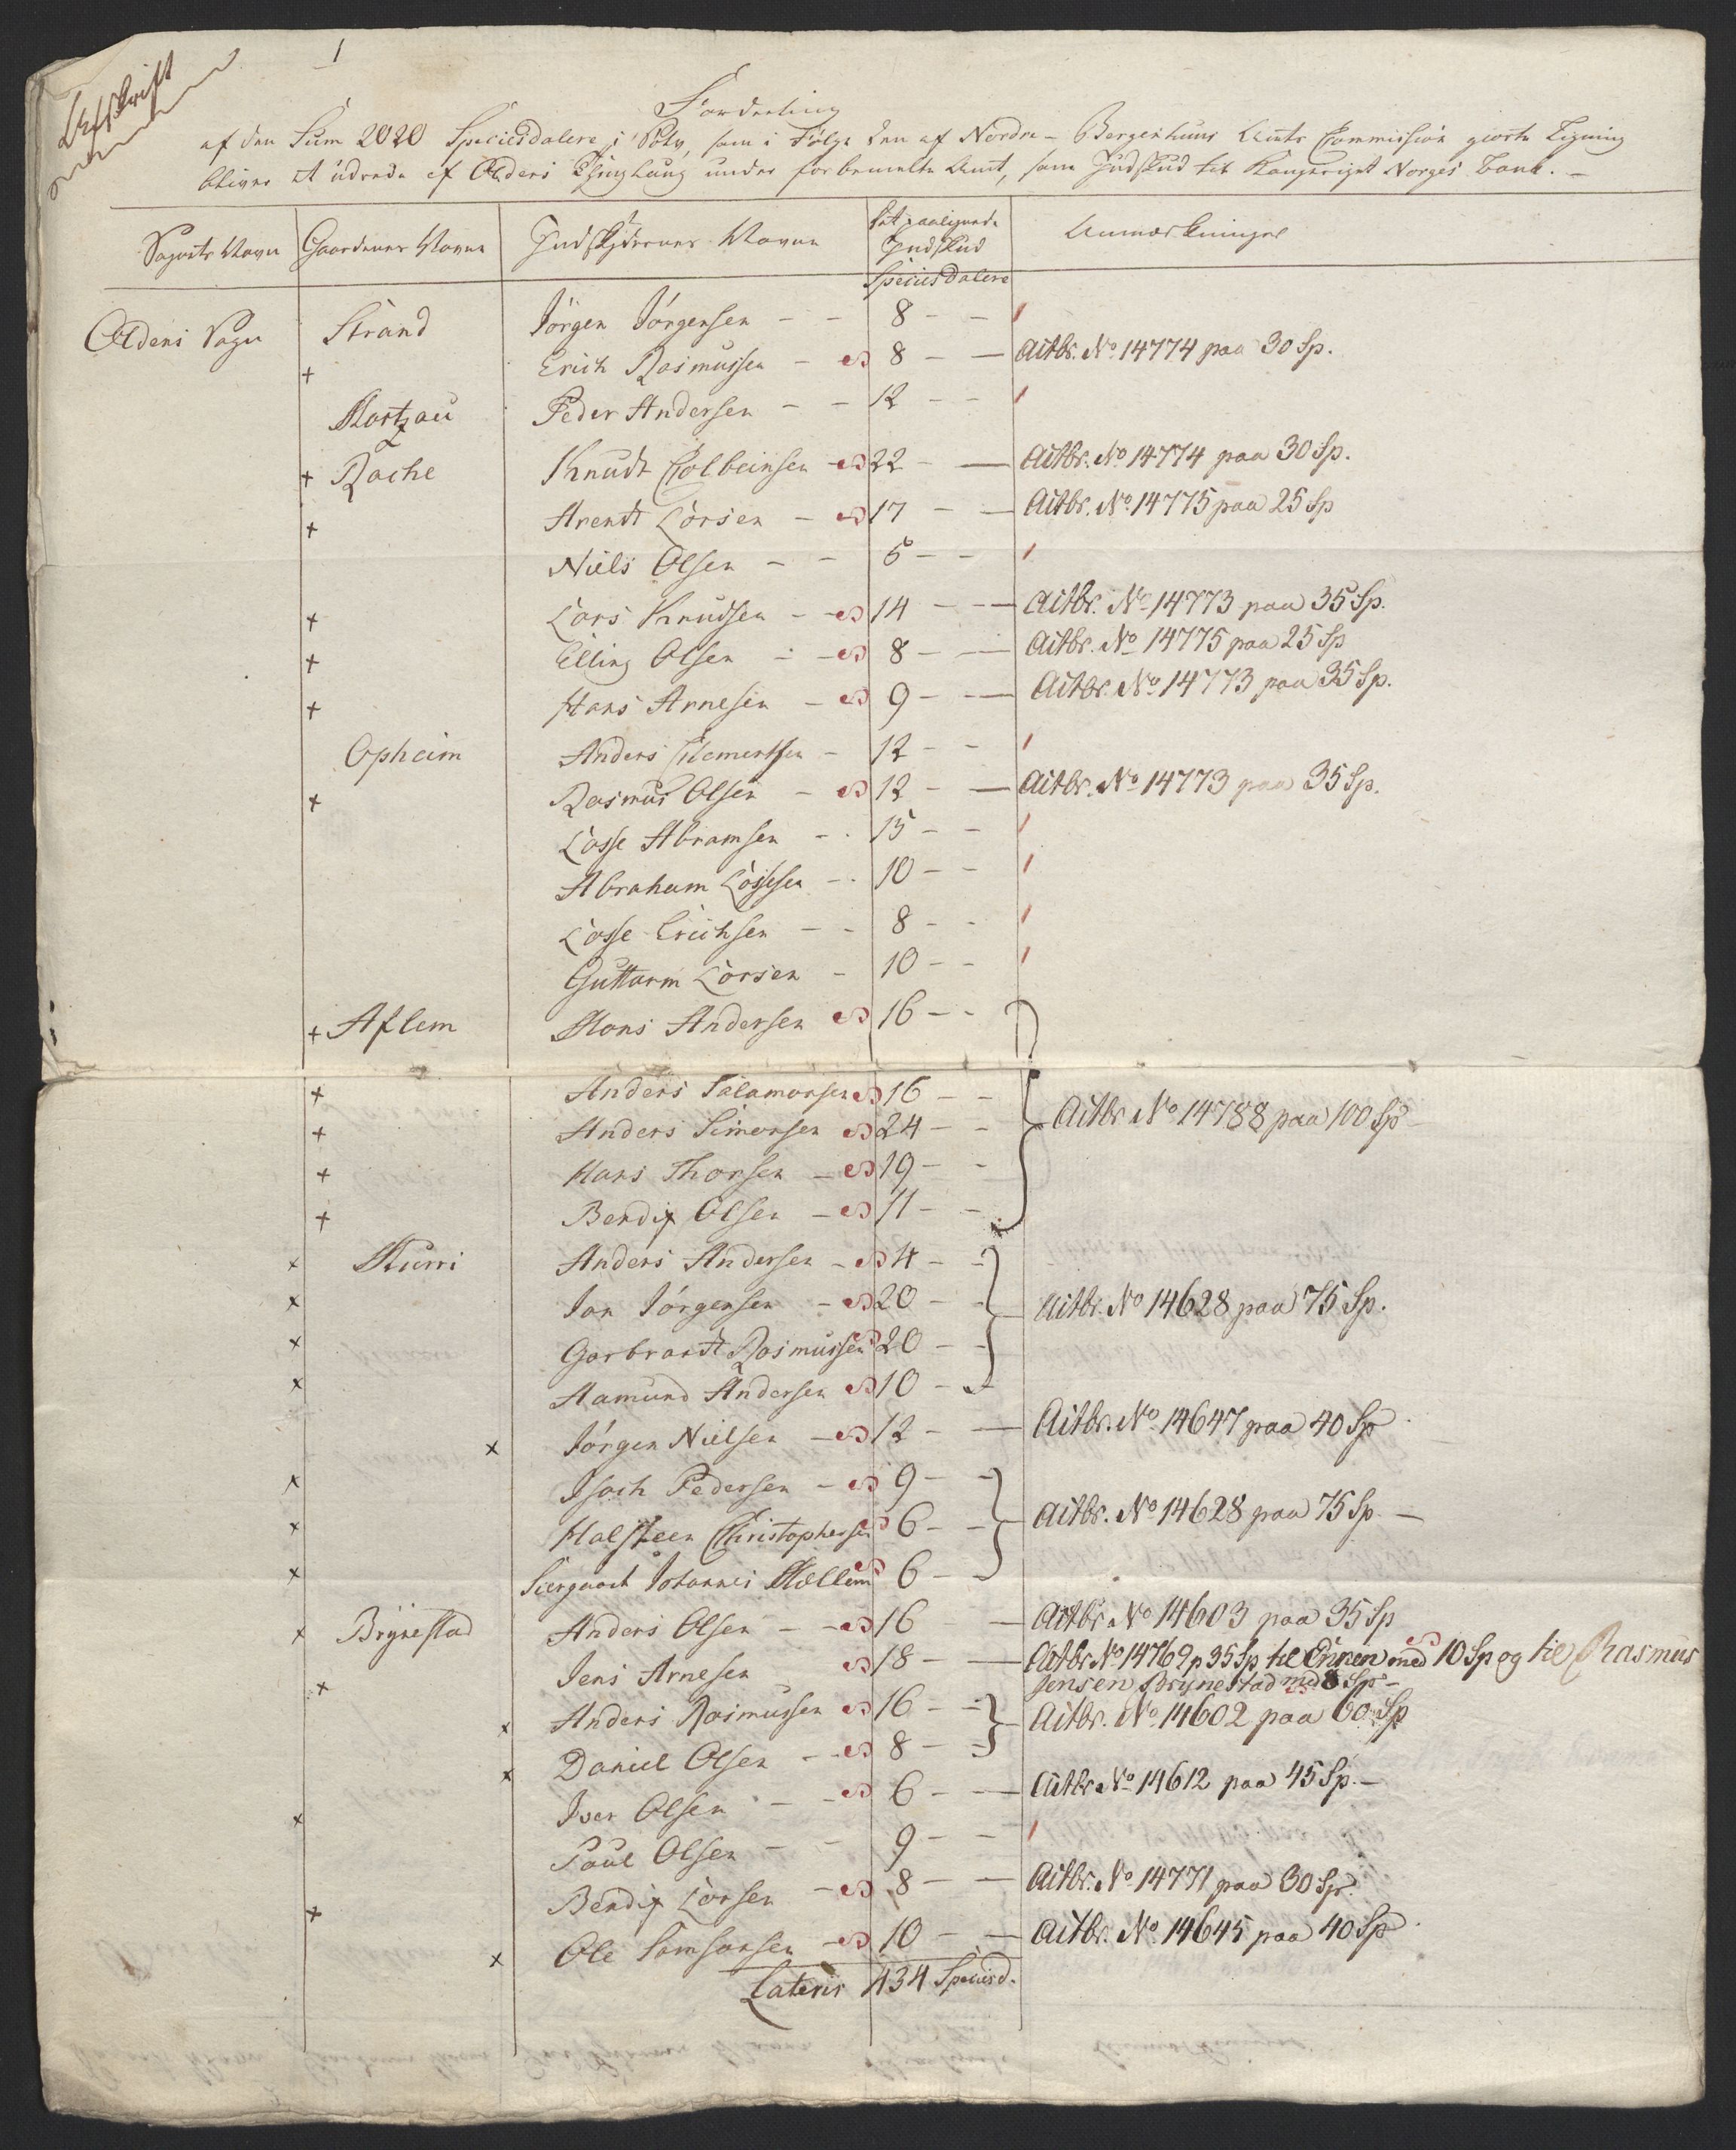 1
Afskrift
Fordeeling
af den Sum 2020 Speciesdalere i Sølv, som i Følge den af Nordre-Bergenhuus Amts Commission giorte Ligning
bliver at udrede af Oldens Thinglaug under forbenevnte Amt, som Indskud til Kongeriget Norges Bank. -
Sognets Navn Gaardenes Navne Indskydernes Navne Det paalignede Indskud Speciesdalere Anmærkninger
Oldens Sogn Strand Jörgen Jörgensen - - 8 - -
+ Erich Rasmussen - 8 - - Actbr. No 14774 paa 30 Sp.
Peder Andersen - - 12 - -
+ Rache Knudt Colbeinsen - 22 - - Actbr. No 14774 paa 30 Sp.
+ Arendt Larsen - 17 - - Actbr. No 14775 paa 25 Sp
Niels Olsen - - 5 - -
+ Lars Knudsen - 14 - - Actbr. No 14773 paa 35 Sp.
+ Elling Olsen - 8 - - Actbr. No 14775 paa 25 Sp
+ Hans Arnesen - 9 - - Actbr. No 14773 paa 35 Sp.
Opheim Anders Clemertsen - 12 - -
+ Rasmus Olsen - 12 - - Actbr. No 14773 paa 35 Sp.
Lasse Abramsen - - 15 - -
Abraham Lassesen - - 10 - -
Lasse Erichsen - - 8 - -
Guttorm Larsen - 10 - -
+ Aflem Mons Andersen 16 - -
+ Anders Salamonsen 16 - -
+ Anders Simonsen 24 - - Actbr No 14788 paa 100 Sp -
+ Hans Thorsen - 19 - -
+ Bendix Olsen - 11 - -
x Muri Anders Andersen - 4 - -
x Jon Jörgensen - 20 - - Actbr. No 14628 paa 75 Sp.
x Garbrandt Rasmussen 20 - -
x Aamund Andersen 10 - -
x Jörgen Nielsen - 12 - - Actbr. No 14647 paa 40 Sp
x Isach Pedersen - 9 - -
x Halsteen Christophersen 6 - - Actbr. No 14628 paa 75 Sp. -
x Johannes 6 - -
x Brynestad Anders Olsen - - 16 - Actbr No 14603 paa 35 Sp
+ Jens Arnesen 18 - - Actbr No 14769 p 35 Sp til Enken med 10 Sp og til Rasmus
Jensen Brynestad med 8 Sp -
x Anders Rasmussen 16 - - Actbr. No 14602 paa 60 Sp
x Daniel Olsen - 8 - -
x Iver Olsen - - 6 - - Actbr No 14612 paa 45 Sp. -
Paul Olsen - - 9 - -
+ Bendix Larsen - 8 - - Actbr. No 14771 paa 30 Sp.
x Ole Samsonsen - 10 - - Actbr. No 14645 paa 40 Sp
Lateris 434 Speciesd.